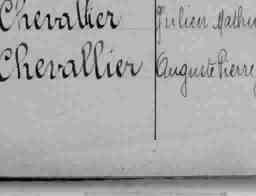 Chevallier Julien Mathu
Chevallier Auguste Pierre